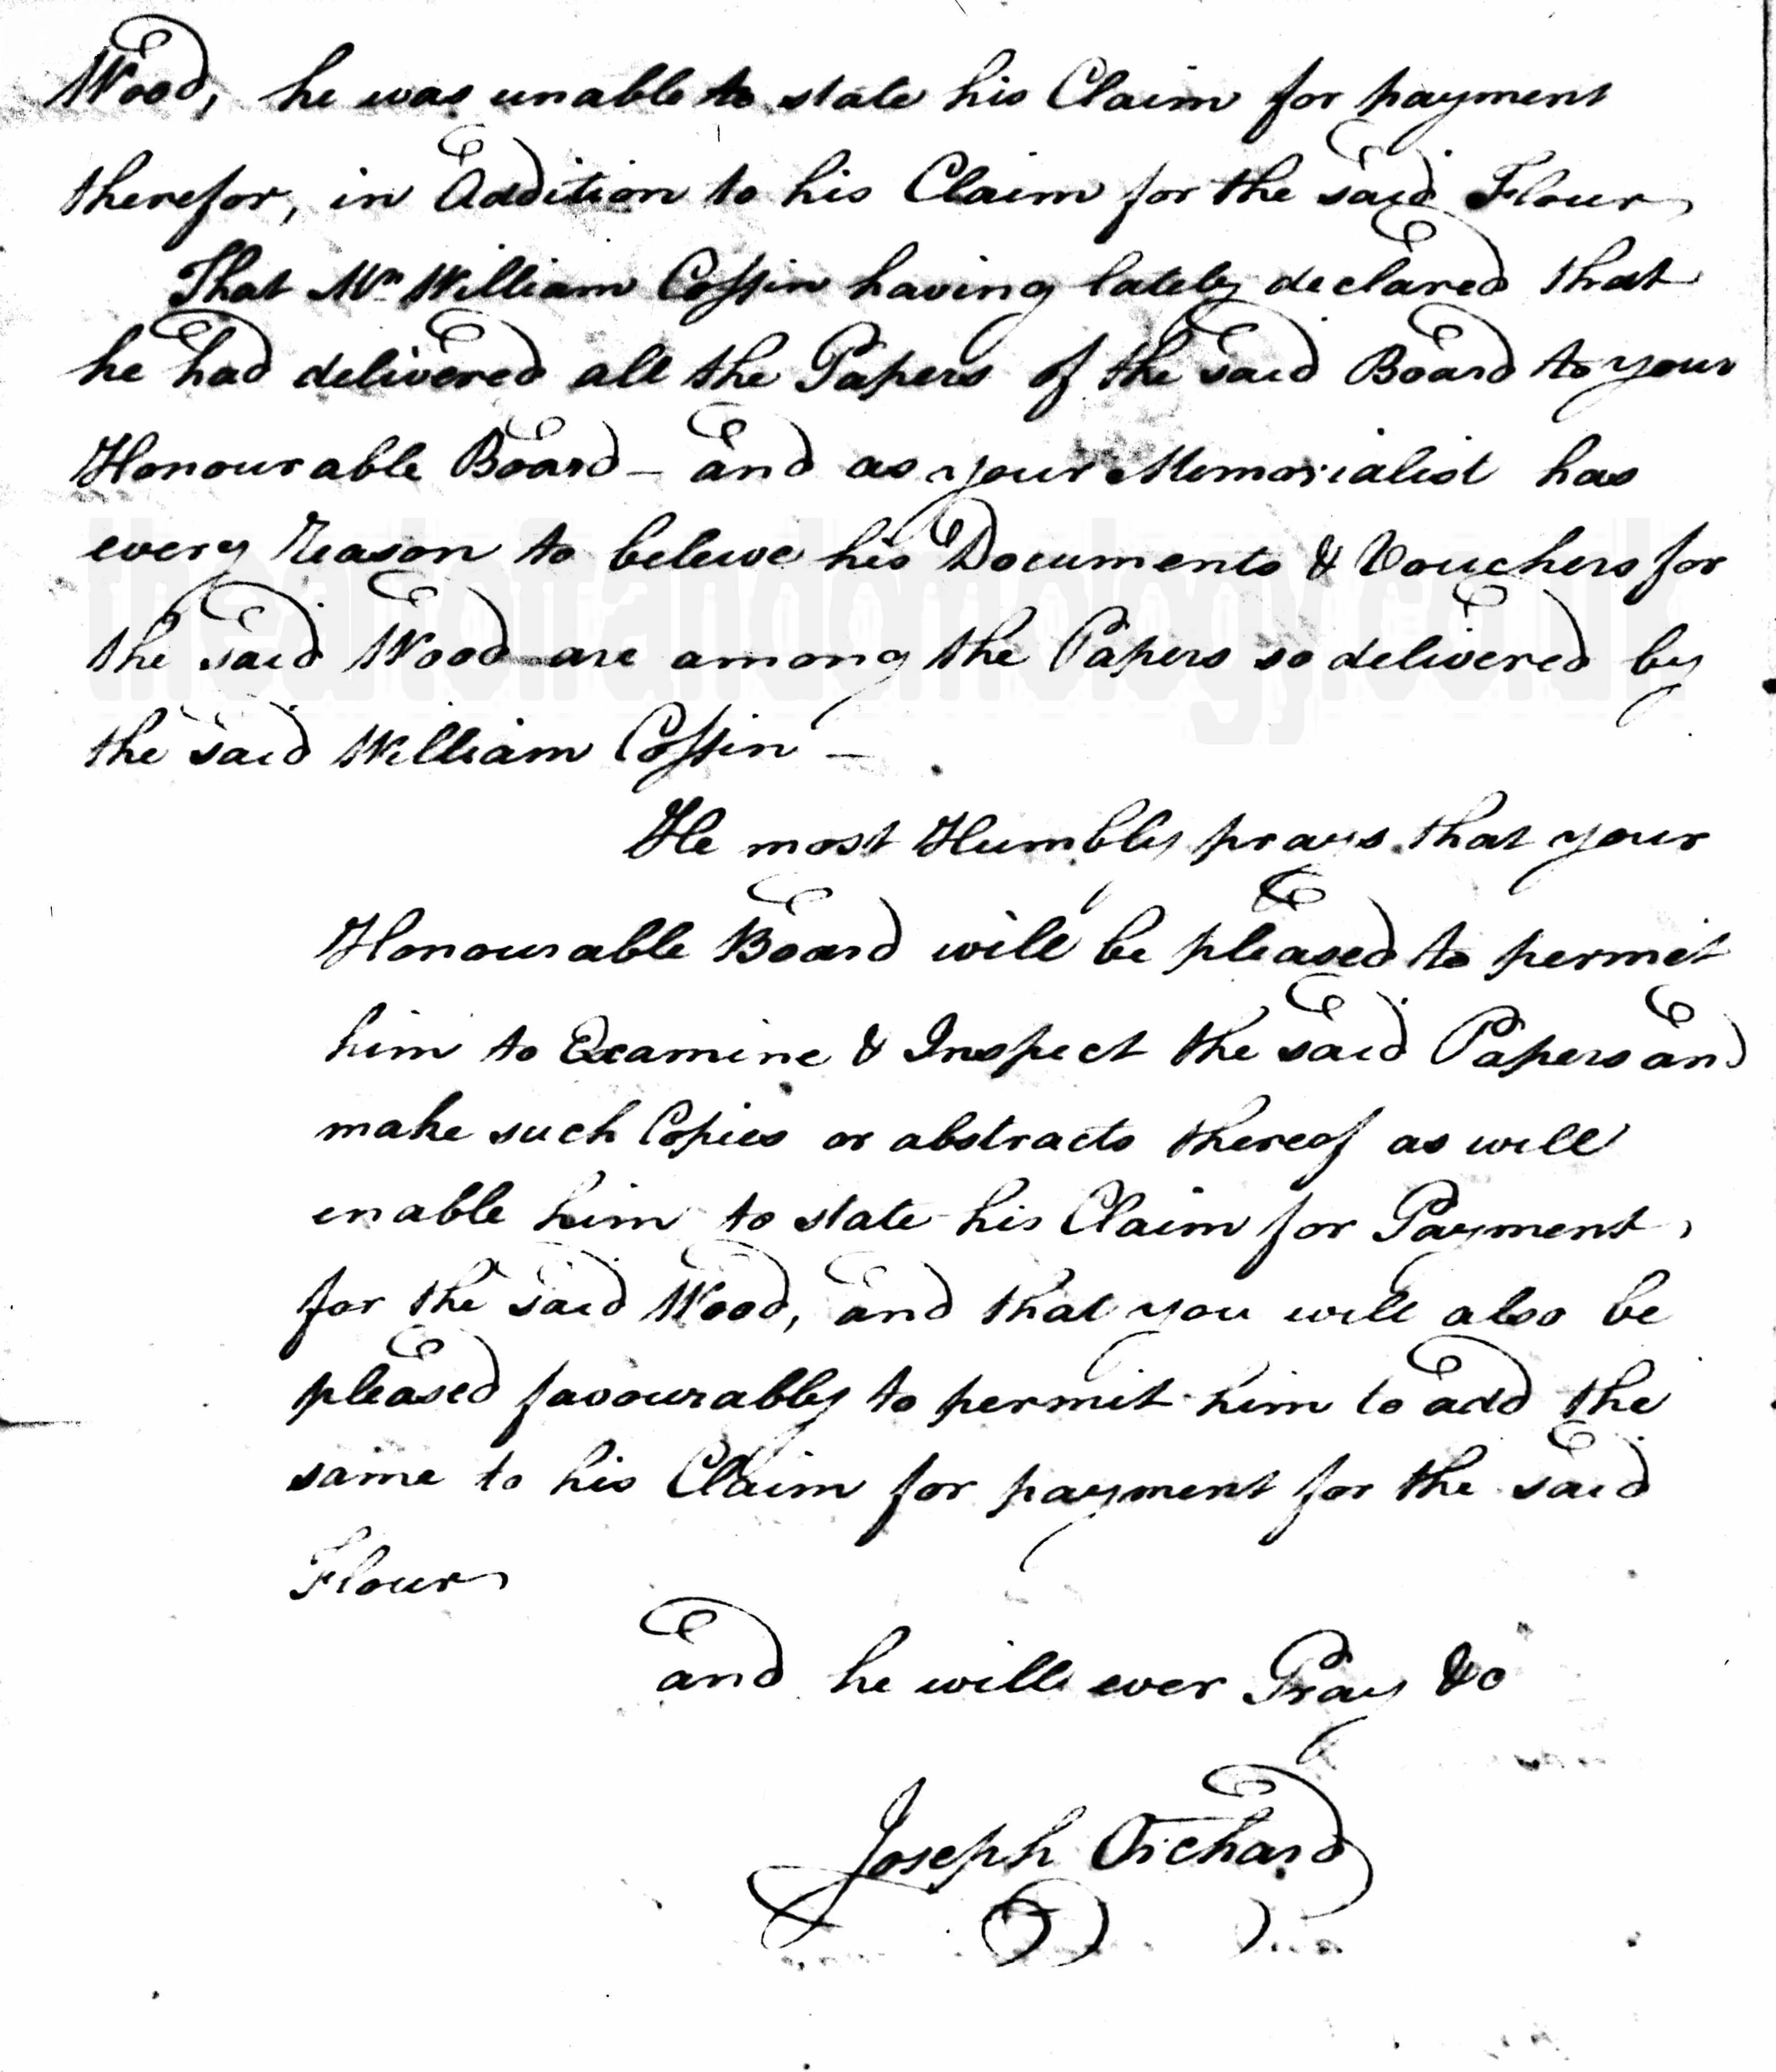 Wood, he was unable to state his Claim for payment
therefor, in Addition to his Claim for the said Flour
That Mr William Coffin having lately declared that
he had delivered all the Papers of the said Board to your
Honourable Board – and as your Memorialist has
every Reason to beleive his Documents & Vouchers for
the said Wood are among the Papers so delivered by
the said William Coffin –
He most Humbly prays that your
Honourable Board will be pleased to permit
him to Examine & Inspect the said Papers and
make such Copies or abstracts thereof as will
enable him to state his Claim for Payment,
for the said Wood, and that you will also be
pleased favourably to permit him to add the
same to his Claim for payment for the said
Flour
and he will ever Pray &c
Joseph Orchard